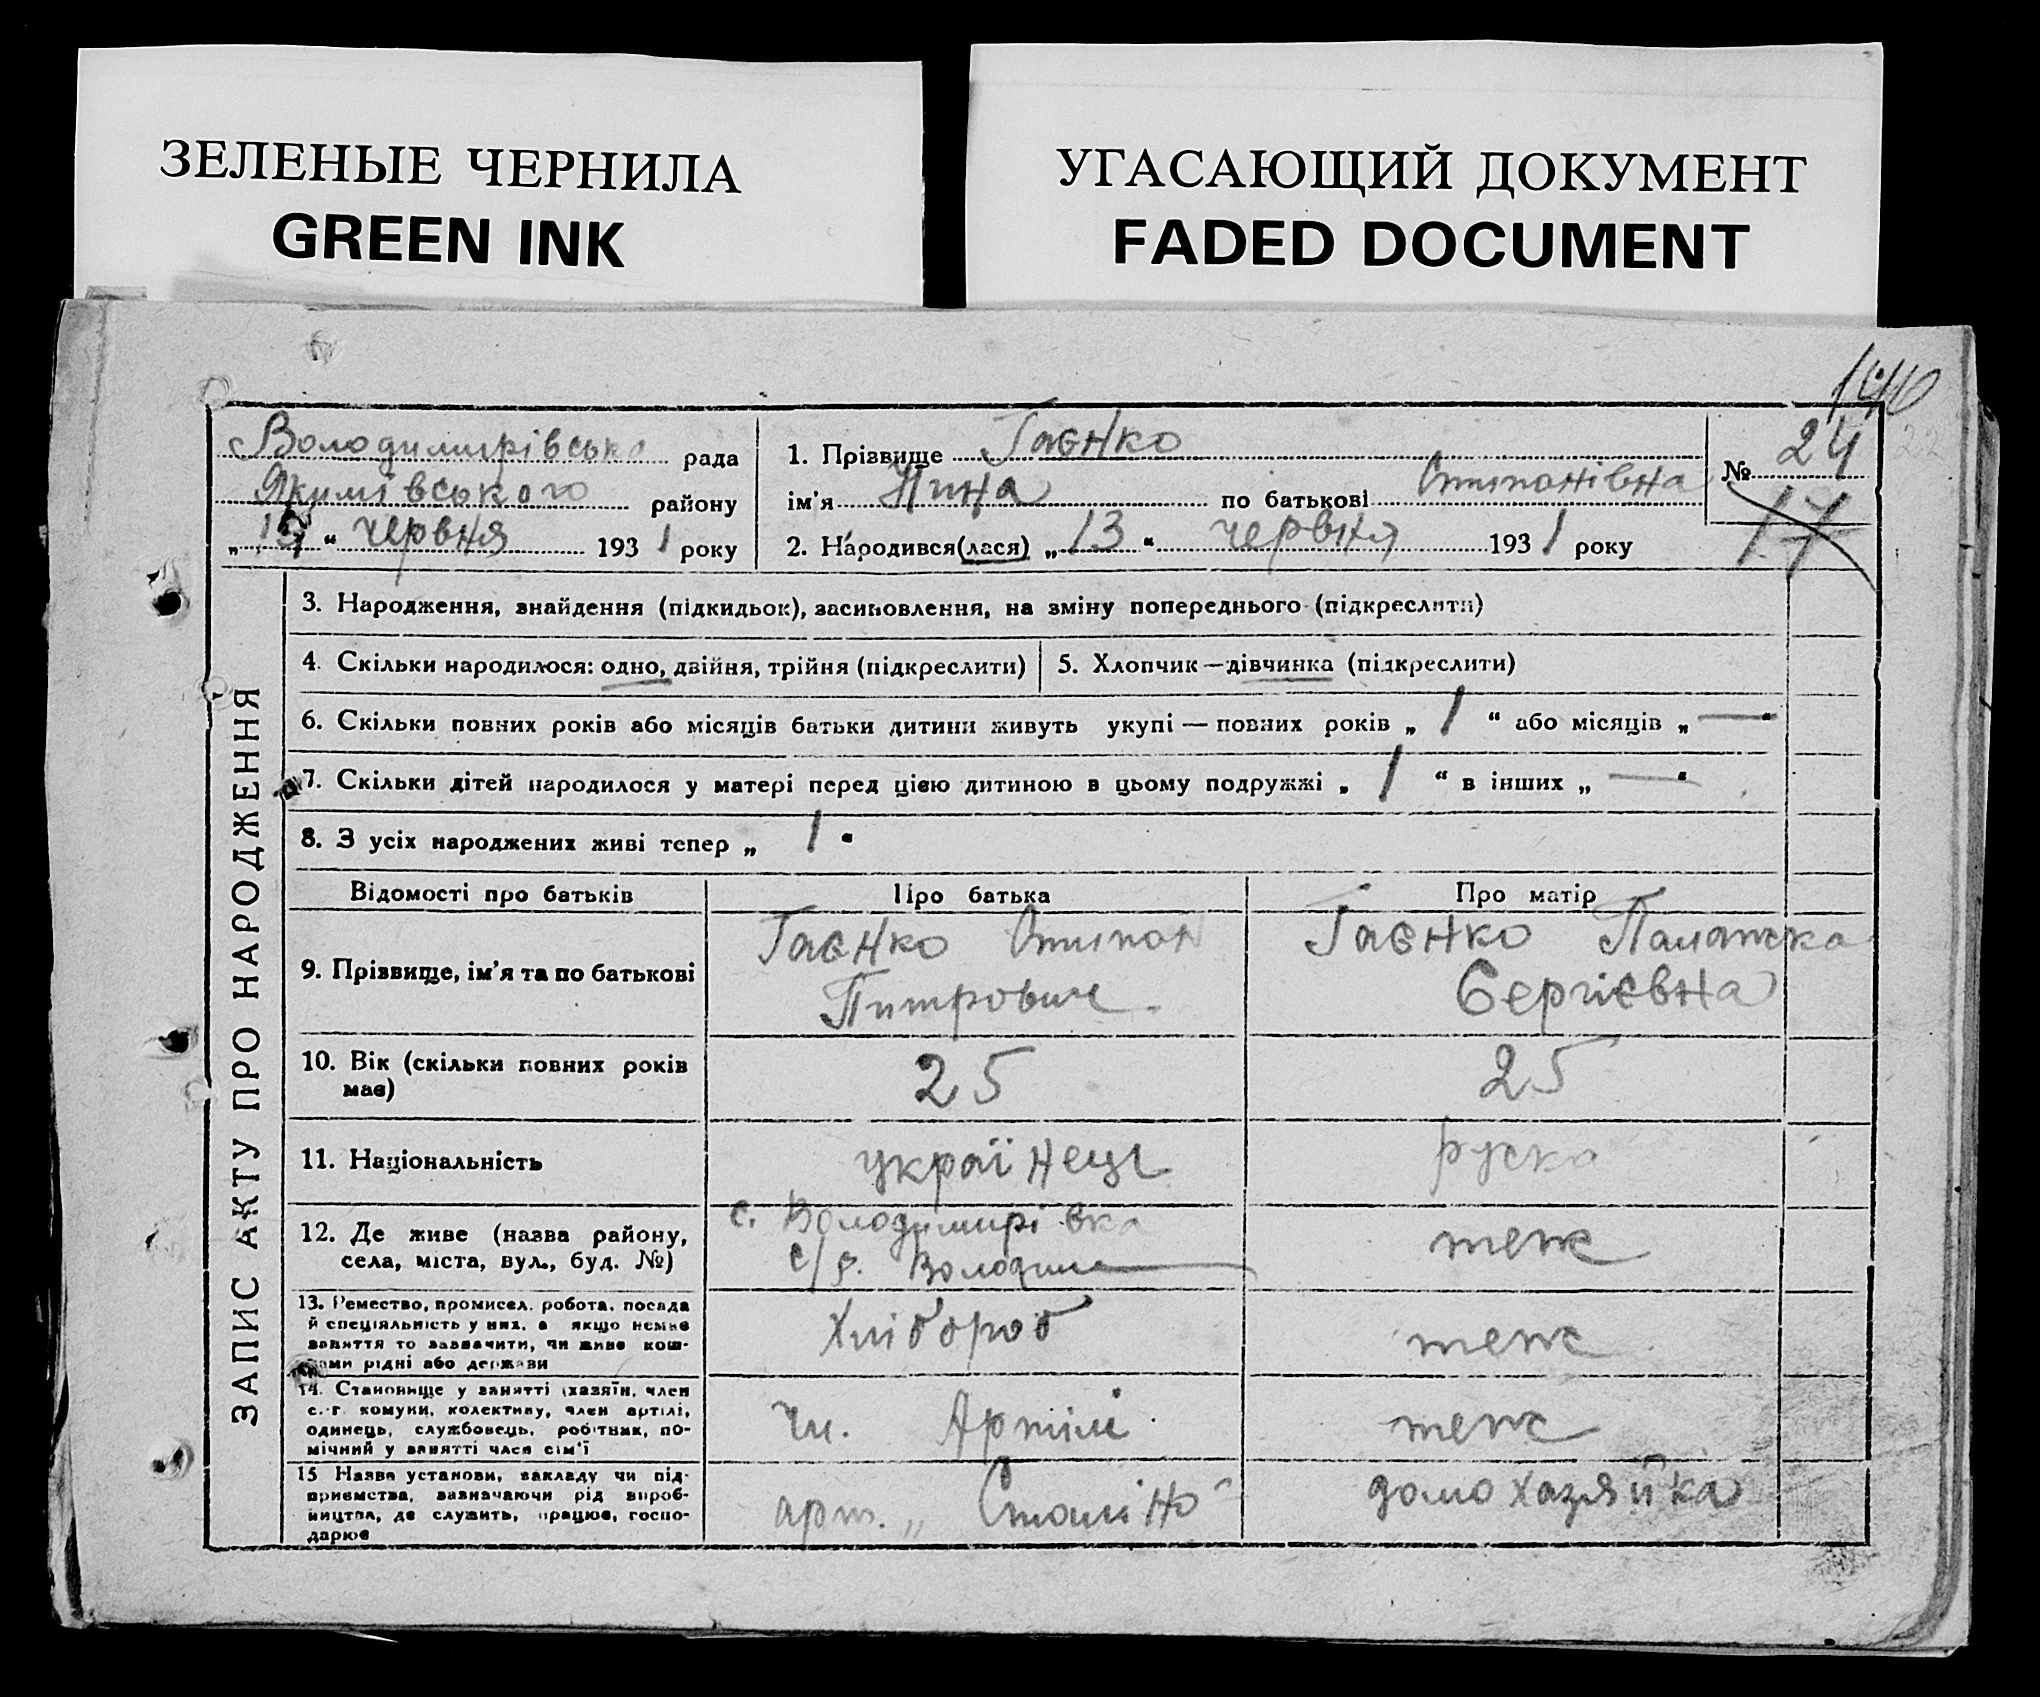 ЗЕЛЕНЫЕ ЧЕРНИЛА
GREEN INK
УГАСАЮЩИЙ ДОКУМЕНТ
FADED DOCUMENT
Володимирівська рада
Якимівського району
червня 1931 року
1. Прізвище Гаєнко
ім'я Нина по батькові Стипонівна
2. Народився(лася) „13“ червня 1931 року
№ 24
17
22
ЗАПИС АКТУ ПРО НАРОДЖЕННЯ
3. Народження, знайдення (підкидьок), засиновлення, на зміну попереднього (підкреслити)
4. Скільки народилося: одно, двійня, трійня (підкреслити)
5. Хлопчик—дівчинка (підкреслити)
6. Скільки повних років або місяців батьки дитини живуть укупі — повних років „1“ або місяців „—“
7. Скільки дітей народилося у матері перед цією дитиною в цьому подружжі „1“ в інших „—“
8. З усіх народжених живі тепер „1“
Відомості про батьків Про батька Про матір
9. Прізвище, ім'я та по батькові
Гаєнко Стипон
Питрович
Гаєнко Палажка
Сергієвна
10. Вік (скільки повних років має)
25
25
11. Національність
українець
руска
12. Де живе (назва району,
села, міста, вул., буд. №)
с. Володимирівка
с/р. Володим
теж
13. Ремество, промисел, робота, посада
й спеціяльність у них, а якщо немає
заняття то зазначити, чи живе кош-
тами рідні або держави
Хлібороб
теж
14. Становище у занятті (хазяїн, член
с.-г. комуни, колективу, член артілі,
одинець, службовець, робітник, по-
мічний у занятті член сім'ї
чл. Артілі
теж
15 Назва установи, закладу чи під-
приємства, зазначаючи рід вироб-
ництва, де служить, працює, госпо-
дарює
арт. „Сталіно“
домохазяйка